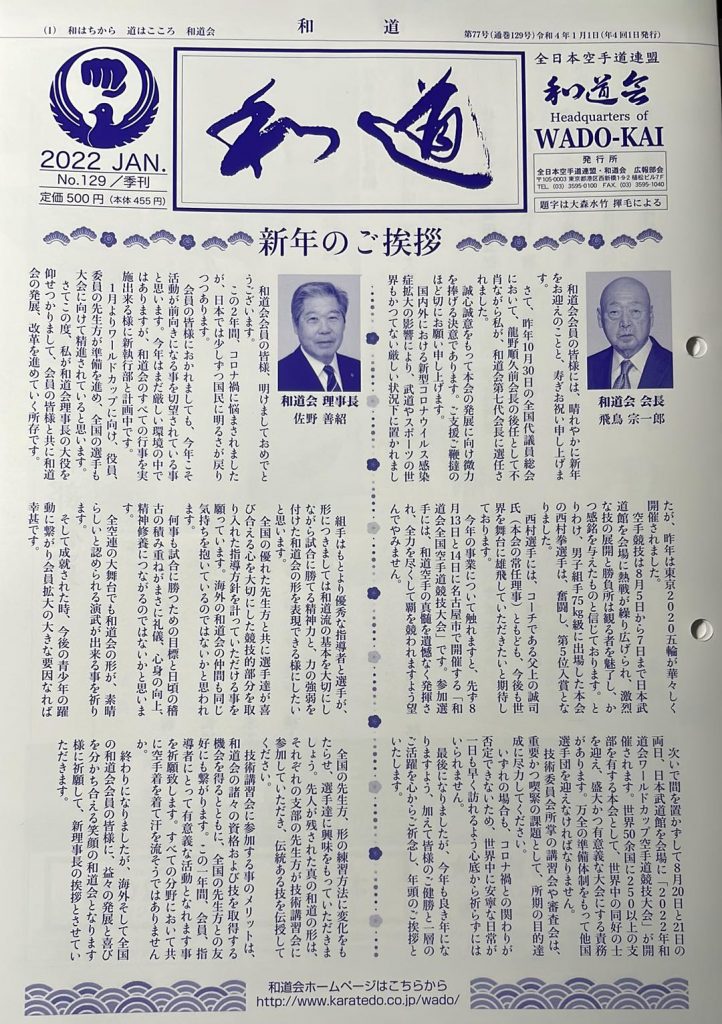 (1) 和はちから 道はこころ 和道会
和 道
第77号(通巻129号)令和4年1月1日(年4回1日発行)
2022 JAN.
No.129/季刊
定価500円(本体455円)
和道
全日本空手道連盟
和道会
Headquarters of
WADO-KAI
発行所
全日本空手道連盟・和道会 広報部会
〒105-0003 東京都港区西新橋1-9-2 植松ビル7F
TEL (03) 3595-0100 FAX. (03) 3595-1040
題字は大森水竹 揮毛による
新年のご挨拶
和道会 会長
飛鳥 宗一郎
和道会会員の皆様には、晴れやかに新年
をお迎えのことと、寿ぎお祝い申し上げま
す。
さて、昨年10月30日の全国代議員総会
において、龍野順久前会長の後任として不
肖ながら私が、和道会第七代会長に選任さ
れました。
誠心誠意をもって本会の発展に向け微力
を捧げる決意であります。ご支援ご鞭撻の
ほど切にお願い申し上げます。
国内外における新型コロナウイルス感染
症拡大の影響により、武道やスポーツの世
界もかつてない厳しい状況下に置かれまし
たが、昨年は東京2020五輪が華々しく
開催されました。
空手競技は8月5日から7日まで日本武
道館を会場に熱戦が繰り広げられ、激烈
な技の展開と勝負所は観る者を魅了し、か
つ感銘を与えたものと信じております。と
りわけ、男子組手75㎏級に出場した本会
の西村拳選手は、奮闘し、第5位入賞とな
りました。
西村選手には、コーチである父上の誠司
氏(本会の常任理事)ともども、今後も世
界を舞台に雄飛していただきたいと期待し
ております。
今年の事業について触れますと、先ず8
月13日と14日に名古屋市で開催する「和
道会全国空手道競技大会」です。参加選
手には、和道空手の真髄を遺憾なく発揮さ
れ、全力を尽くして覇を競われますよう望
んでやみません。
次いで間を置かずして8月20日と21日の
両日、日本武道館を会場に「2022年和
道会ワールドカップ空手道競技大会」が開
催されます。世界50余国に250以上の支
部を有する本会として、世界中の同好の士
を迎え、盛大かつ有意義な大会にする責務
があります。万全の準備体制をもって他国
選手団を迎えなければなりません。
技術委員会所掌の講習会や審査会は、
重要かつ喫緊の課題として、所期の目的達
成に尽力してください。
いずれの場合も、コロナ禍との関わりが
否定できないため、世界中に安寧な日常が
一日も早く訪れるよう心底から祈らずには
いられません。
最後になりましたが、今年も良き年にな
りますよう、加えて皆様のご健勝と一層の
ご活躍を心からご祈念し、年頭のご挨拶と
いたします。
和道会 理事長
佐野 善紹
和道会会員の皆様、明けましておめでと
うございます。
この2年間、コロナ禍に悩まされました
が、日本では少しずつ国民に明るさが戻り
つつあります。
会員の皆様におかれましても、今年こそ
活動が前向きになる事を切望されている事
と思います。今年はまだ厳しい環境の中で
はありますが、和道会のすべての行事を実
施出来る様に新執行部と計画中です。
1月よりワールドカップに向け、役員、
委員の先生方が準備を進め、全国の選手も
大会に向けて精進されていると思います。
さてこの度、私が和道会理事長の大役を
仰せつかりまして、会員の皆様と共に和道
会の発展、改革を進めていく所存です。
組手はもとより優秀な指導者と選手が、
形につきましては和道流の基本を大切にし
ながら試合に勝てる精神力と、力の強弱を
付けた和道会の形を表現できる様にしたい
と思います。
全国の優れた先生方と共に選手達が喜
び合える心を大切にした競技的部分を取
り入れた指導方針を計っていただける事を
願っています。海外の和道会の仲間も同じ
気持ちを抱いているのではないかと思われ
ます。
何事も試合に勝つための目標と日頃の稽
古の積み重ねがまさに礼儀、心身の向上、
精神修養につながるのではないかと思いま
す。
全空連の大舞台でも和道会の形が、素晴
らしいと認められる演武が出来る事を祈り
ます。
そして成就された時、今後の青少年の躍
動に繋がり会員拡大の大きな要因なれば
幸甚です。
全国の先生方、形の練習方法に変化をも
たらせ、選手達に興味をもっていただきま
しょう。先人が残された真の和道の形は、
それぞれの支部の先生方が技術講習会に
参加していただき、伝統ある技を伝授して
ください。
技術講習会に参加する事のメリットは、
和道会の諸々の資格および技を取得する
機会を得るとともに、全国の先生方との友
好にも繋がります。この一年間、会員、指
導者にとって有意義な活動となれます事
を祈願致します。すべての分野において共
に空手着を着て汗を流そうではありません
か。
終わりになりましたが、海外そして全国
の和道会会員の皆様に、益々の発展と喜び
を分かち合える笑顔の和道会となります
様に祈願して、新理事長の挨拶とさせてい
ただきます。
和道会ホームページはこちらから
http://www.karatedo.co.jp/wado/